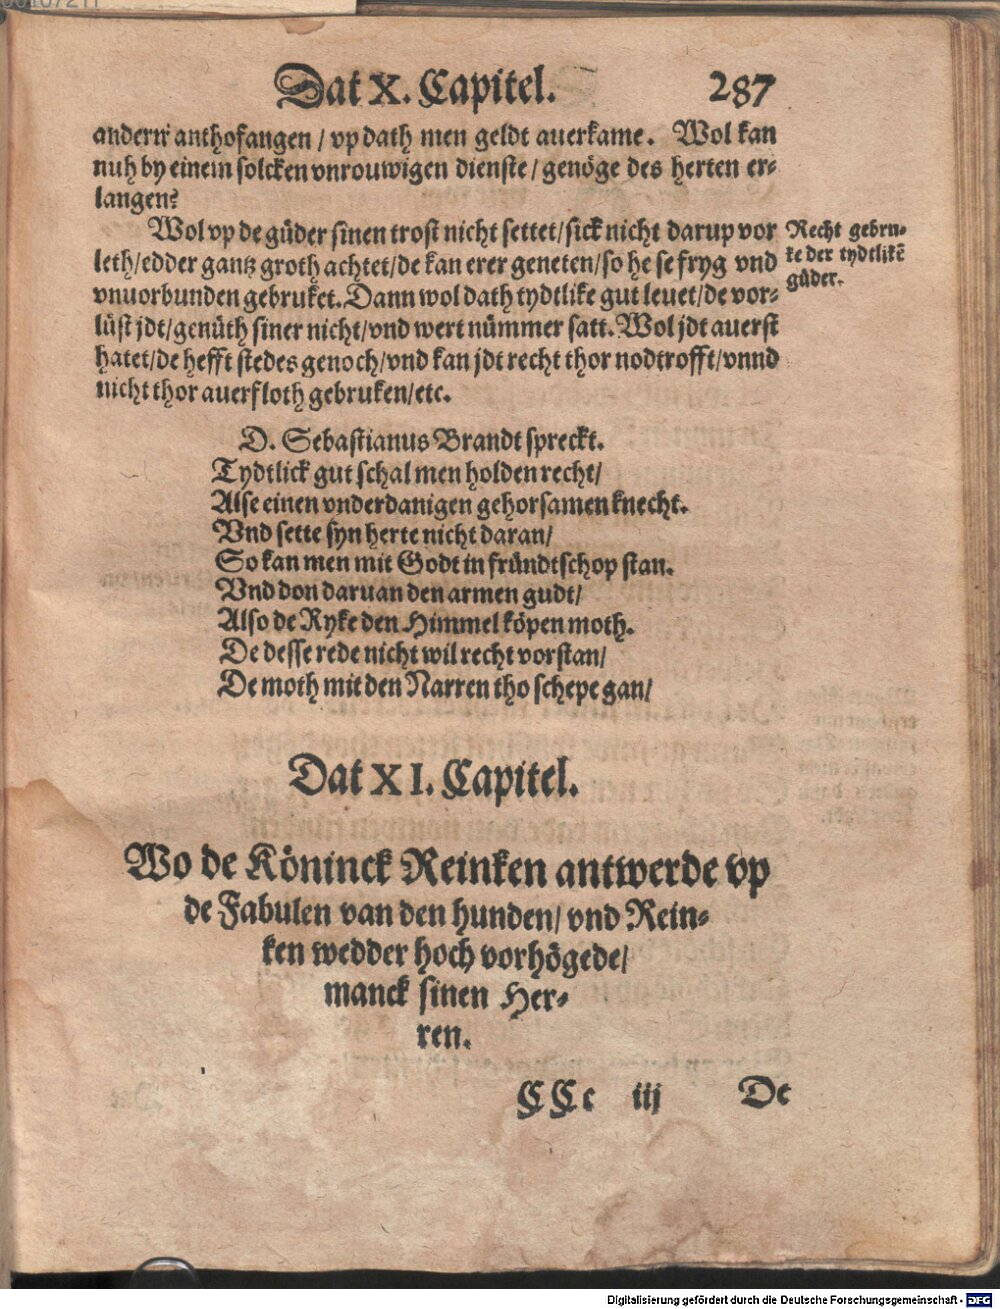 Dat X. Capitel. 287
andern anthofangen / vp dath men geldt auerkame. Wol kan
nuh by einem solcken vnrouwigen dienste / genöge des herten er-
langen?
Wol vp de güder sinen trost nicht settet/sick nicht darup vor
leth/edder gantz groth achtet/de kan erer geneten/so he se fryg vnd
vnuorbunden gebruket. Dann wol dath tydtlike gut leuet/de vor-
lüst jdt/genüth siner nicht/vnd wert nümmer satt. Wol jdt auerst
hatet/de hefft stedes genoch/vnd kan jdt recht thor nodtrofft/vnnd
nicht thor auerfloth gebruken/etc.
Recht gebru-
ke der tydtlikē
güder.
D. Sebastianus Brandt spreckt.
Tydtlick gut schal men holden recht/
Alse einen vnderdanigen gehorsamen knecht.
Vnd sette syn herte nicht daran/
So kan men mit Godt in fründtschop stan.
Vnd don daruan den armen gudt/
Also de Ryke den Himmel köpen moth.
De desse rede nicht wil recht vorstan/
De moth mit den Narren tho schepe gan/
Dat XI. Capitel.
Wo de Köninck Reinken antwerde vp
de Fabulen van den hunden/ vnd Rein-
ken wedder hoch vorhögede/
manck sinen Her-
ren.
CCc iij De
Digitalisierung gefördert durch die Deutsche Forschungsgemeinschaft - DFG